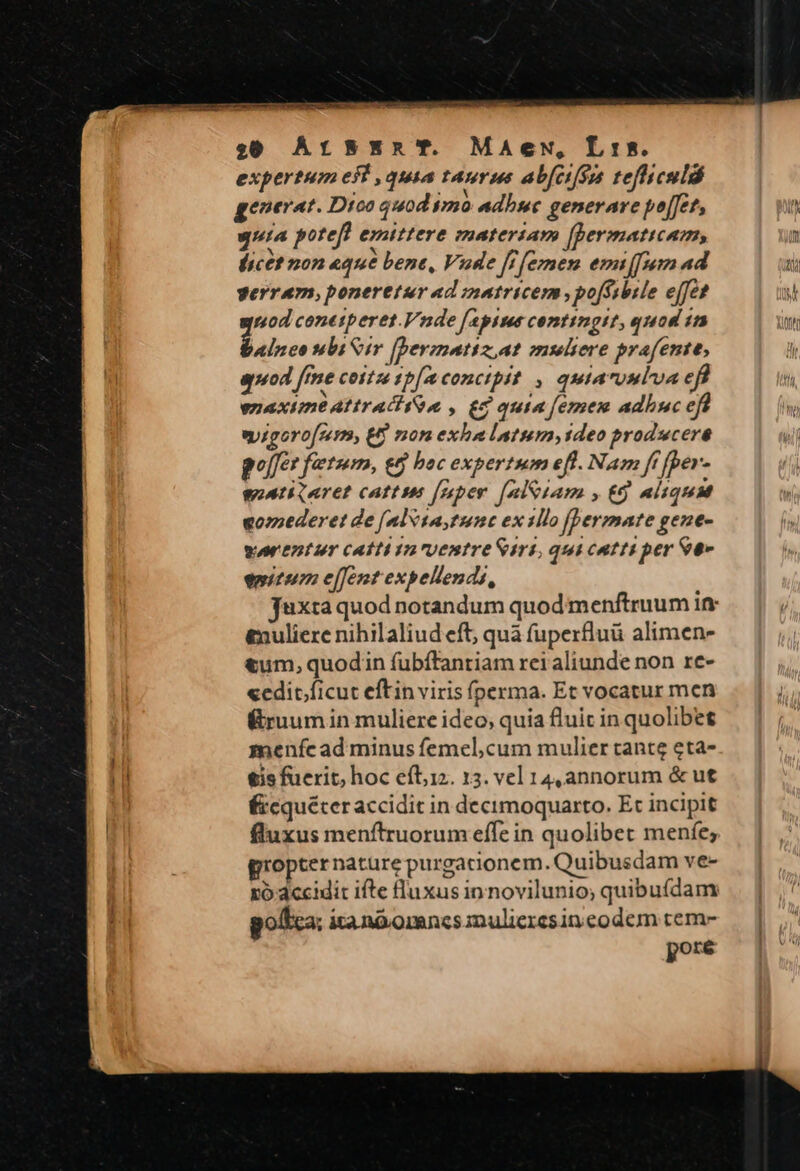 20 ALBERT. MAGN, LIB.
expertum est, quia taurus abscisſis teſticulis
generat. Dico quod imò adhuc generare poſſet,
quia poteſt emittere materiam ſpermaticam,
licet non æquè benè, Vnde ſi ſemen emiſſum ad
terram, poneretur ad matricem, poſſibile eſſet
quod conciperet. Vnde ſæpius contingit, quod in
balneo ubi vir ſpermatizat muliere præſente,
quod ſine coitu ipſa concipit, quia vulva eſt
maximè attractiva, & quia ſemen adhuc eſt
vigoroſum, & non exhalatum, ideo producere
poſſet fœtum, & hoc expertum eſt. Nam ſi ſper-
matizaret cattus ſuper ſalviam, & aliquis
comederet de ſalvia, tunc ex illo ſpermate gene-
rarentur catti in ventre viri, qui catti per vo-
mitum eſſent expellendi,
Juxta quod notandum quod menſtruum in
muliere nihil aliud eſt, quã ſuperfluũ alimen-
tum, quod in ſubſtantiam rei aliunde non re-
cedit, ſicut eſt in viris ſperma. Et vocatur men
ſtruum in muliere ideo, quia fluit in quolibet
menſe ad minus ſemel, cum mulier tantę eta-
tis fuerit, hoc eſt, 12. 13. vel 14, annorum & ut
frequẽter accidit in decimoquarto. Et incipit
fluxus menſtruorum eſſe in quolibet menſe,
propter nature purgationem. Quibusdam ve-
rò accidit iſte fluxus in novilunio, quibuſdam
poſtea; ita nõ omnes mulieres in eodem tem-
pore